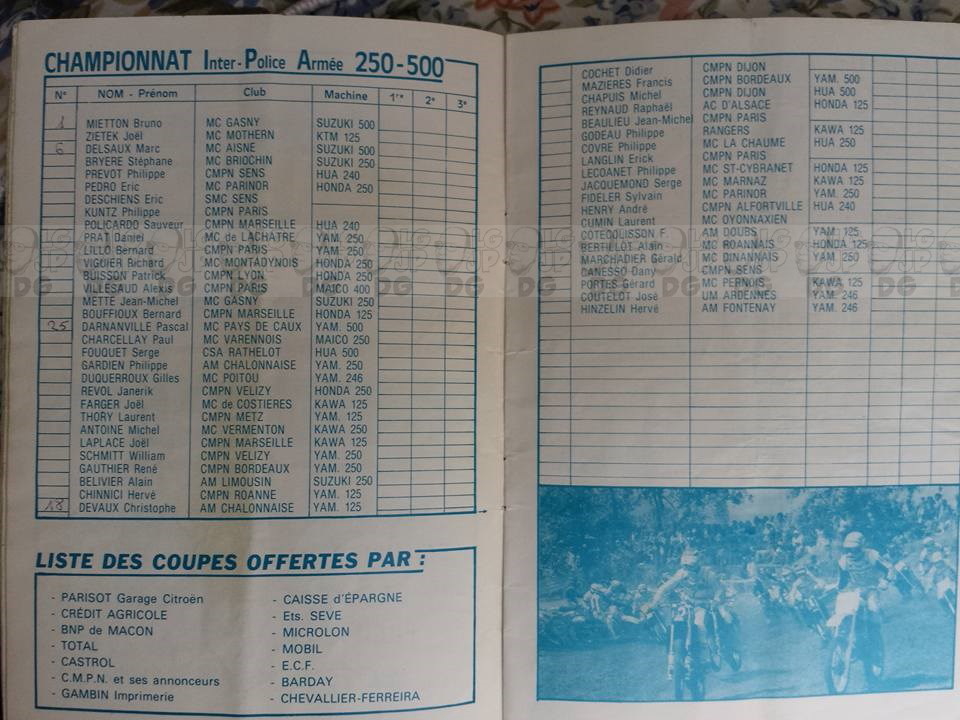 CHAMPIONNAT Inter-Police Armée 250-500
N° NOM - Prénom Club Machine 1re 2e 3e
1 MIETTON Bruno MC GASNY SUZUKI 500
ZIETEK Joël MC MOTHERN KTM 125
6 DELSAUX Marc MC AISNE SUZUKI 500
BRYERE Stéphane MC BRIOCHIN SUZUKI 250
PREVOT Philippe CMPN SENS HUA 240
PEDRO Eric MC PARINOR HONDA 250
DESCHIENS Eric SMC SENS
KUNTZ Philippe CMPN PARIS
POLICARDO Sauveur CMPN MARSEILLE HUA 240
PRAT Daniel MC de LACHATRE YAM. 250
LILLO Bernard CMPN PARIS YAM. 250
VIGUIER Richard MC MONTADYNOIS HONDA 250
BUISSON Patrick CMPN LYON HONDA 250
VILLESAUD Alexis CMPN PARIS MAICO 400
METTE Jean-Michel MC GASNY SUZUKI 250
BOUFFIOUX Bernard CMPN MARSEILLE HONDA 125
25 DARNANVILLE Pascal MC PAYS DE CAUX YAM. 500
CHARCELLAY Paul MC VARENNOIS MAICO 250
FOUQUET Serge CSA RATHELOT HUA 500
GARDIEN Philippe AM CHALONNAISE YAM. 250
DUQUERROUX Gilles MC POITOU YAM. 246
REVOL Janerik CMPN VELIZY HONDA 250
FARGER Joël MC de COSTIERES KAWA 125
THORY Laurent CMPN METZ YAM. 125
ANTOINE Michel MC VERMENTON KAWA 250
LAPLACE Joël CMPN MARSEILLE KAWA 125
SCHMITT William CMPN VELIZY YAM. 250
GAUTHIER René CMPN BORDEAUX YAM. 250
BELIVIER Alain AM LIMOUSIN SUZUKI 250
CHINNICI Hervé CMPN ROANNE YAM. 125
18 DEVAUX Christophe AM CHALONNAISE YAM. 125
LISTE DES COUPES OFFERTES PAR :
- PARISOT Garage Citroën
- CRÉDIT AGRICOLE
- BNP de MACON
- TOTAL
- CASTROL
- C.M.P.N. et ses annonceurs
- GAMBIN Imprimerie
- CAISSE d'ÉPARGNE
- Ets. SEVE
- MICROLON
- MOBIL
- E.C.F.
- BARDAY
- CHEVALLIER-FERREIRA
COCHET Didier CMPN DIJON
MAZIERES Francis CMPN BORDEAUX YAM. 500
CHAPUIS Michel CMPN DIJON HUA 500
REYNAUD Raphaël AC D'ALSACE HONDA 125
BEAULIEU Jean-Michel CMPN PARIS
GODEAU Philippe RANGERS KAWA 125
COVRE Philippe MC LA CHAUME HUA 250
LANGLIN Erick CMPN PARIS
LECOANET Philippe MC ST-CYBRANET HONDA 125
JACQUEMOND Serge MC MARNAZ KAWA 125
FIDELER Sylvain MC PARINOR YAM. 250
HENRY André CMPN ALFORTVILLE HUA 240
CUMIN Laurent MC OYONNAXIEN
COTECOUISSON F. AM DOUBS YAM. 125
BERTHILLOT Alain MC ROANNAIS HONDA 125
MARCHADIER Gérald MC DINANNAIS YAM. 250
CANESSO Dany CMPN SENS
PORTES Gérard MC PERNOIS KAWA 125
COUTELOT José UM ARDENNES YAM. 246
HINZELIN Hervé AM FONTENAY YAM. 246